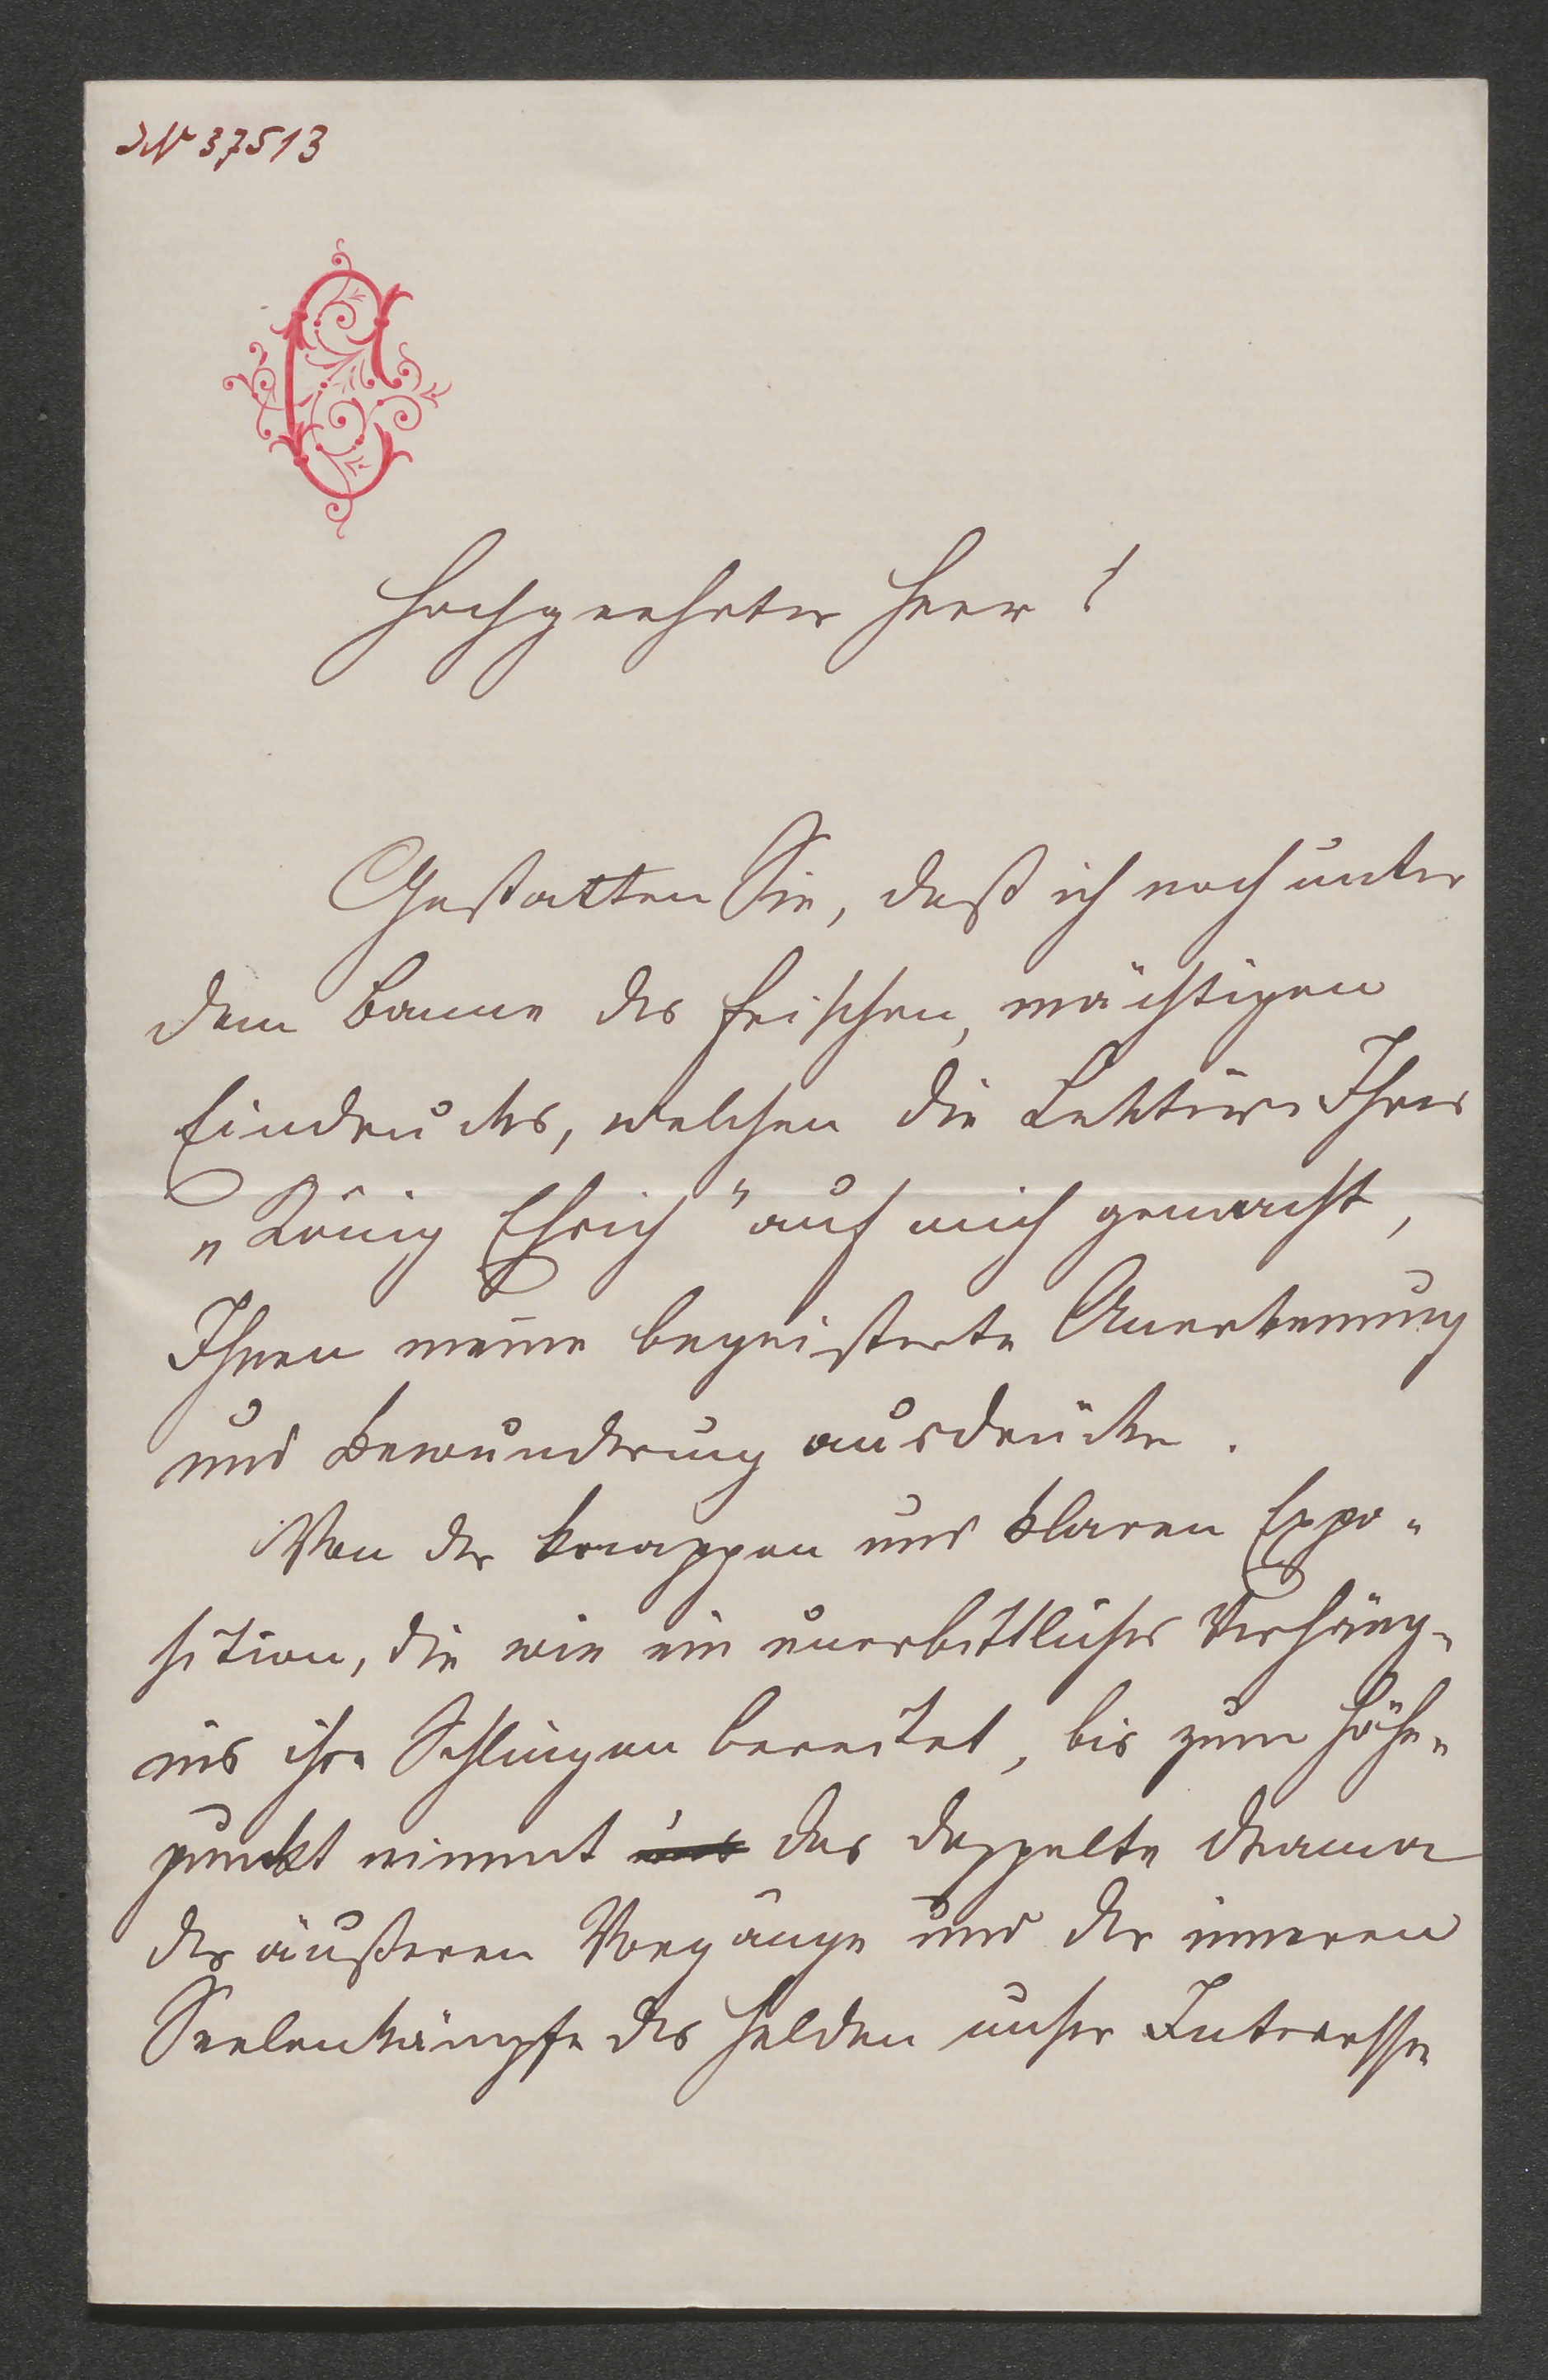 JN 37513
Hochgeehrter Herr!
Gestatten Sie, daß ich noch unter
dem Banne des frischen, mächtigen
Eindruckes, welchen die Lektüre Ihres
„König Erich" auf mich gemacht,
Ihnen meine begeisterte Anerkennung
und Bewunderung ausdrücke.
Von der knappen und klaren Expo-
sition, die wie ein unerbittliches Verhäng-
nis ihre Schlingen bereitet, bis zum Höhe-
punkt nimmt das doppelte Drama
der äußeren Vorgänge und der inneren
Seelenkämpfe des Helden unser Interesse